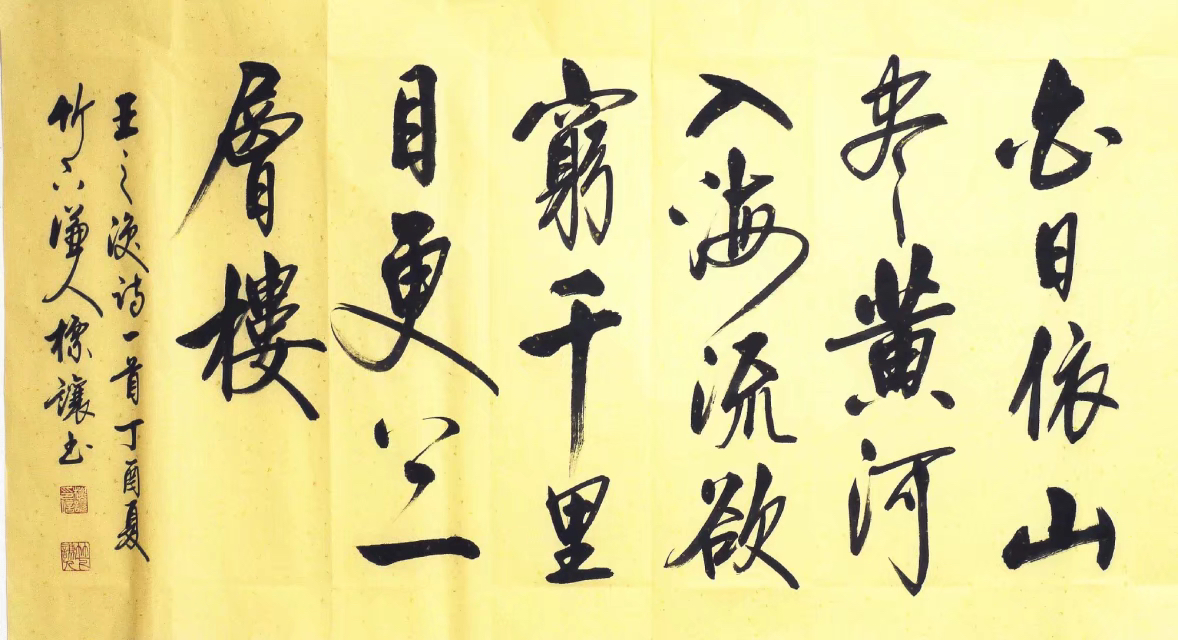 白日依山
尽黄河
入海流欲
窮千里
目更上一
層樓
王之渙詩一首丁酉夏
竹下謙人標讓书